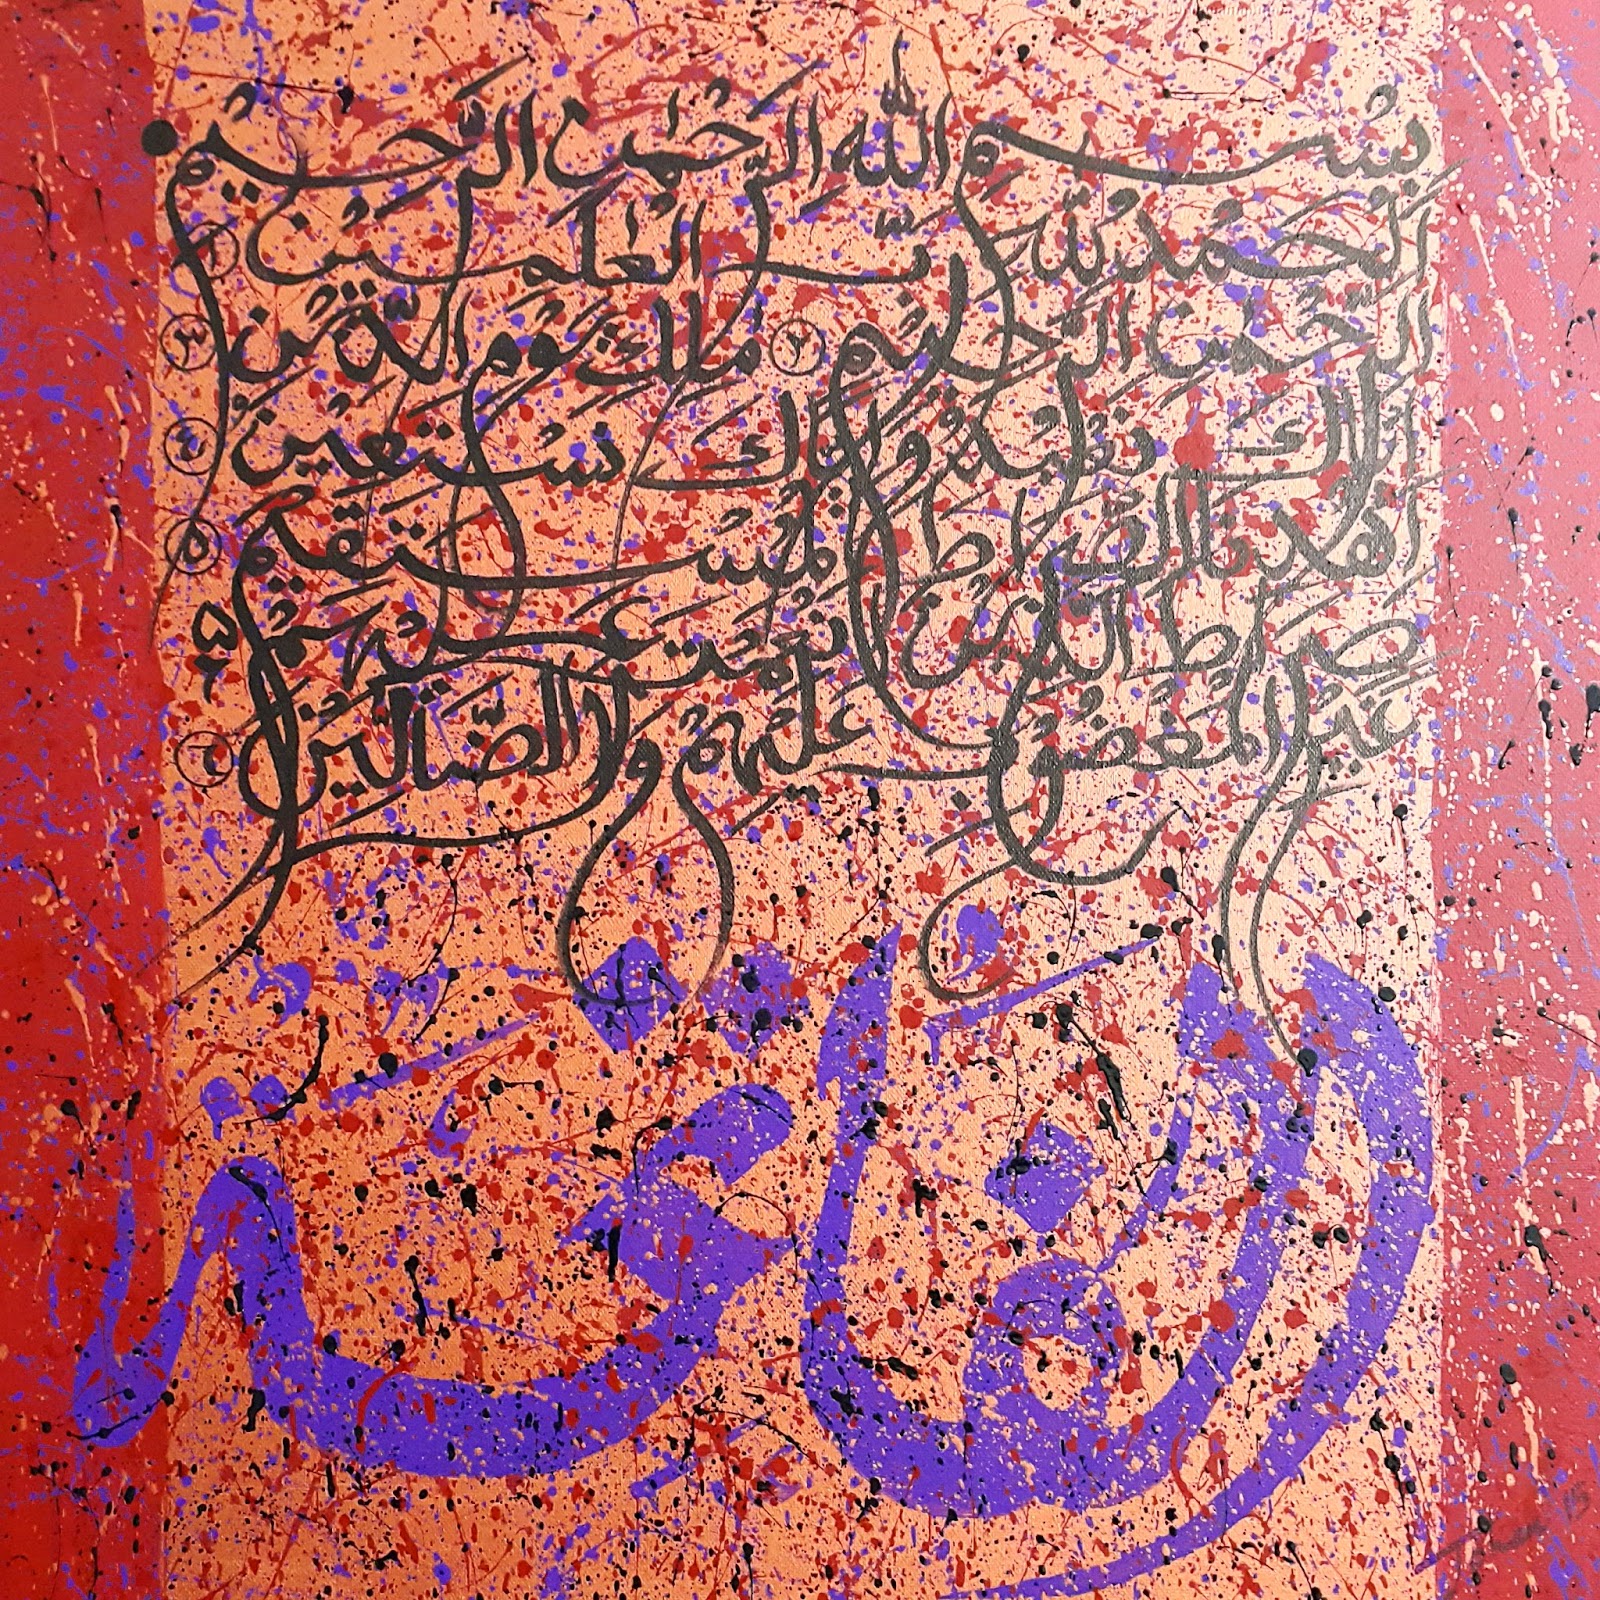 بِسْمِ اللّٰهِ الرَّحْمٰنِ الرَّحِيْمِ
اَلْحَمْدُ لِلّٰهِ رَبِّ الْعٰلَمِيْنَ ١
الرَّحْمٰنِ الرَّحِيْمِ ٢ مٰلِكِ يَوْمِ الدِّيْنِ ٣
اِيَّاكَ نَعْبُدُ وَاِيَّاكَ نَسْتَعِيْنُ ٤
اِهْدِنَا الصِّرَاطَ الْمُسْتَقِيْمَ ٥
صِرَاطَ الَّذِيْنَ اَنْعَمْتَ عَلَيْهِمْ
غَيْرِ الْمَغْضُوْبِ عَلَيْهِمْ وَلَا الضَّالِّيْنَ ٦
الفاتحة